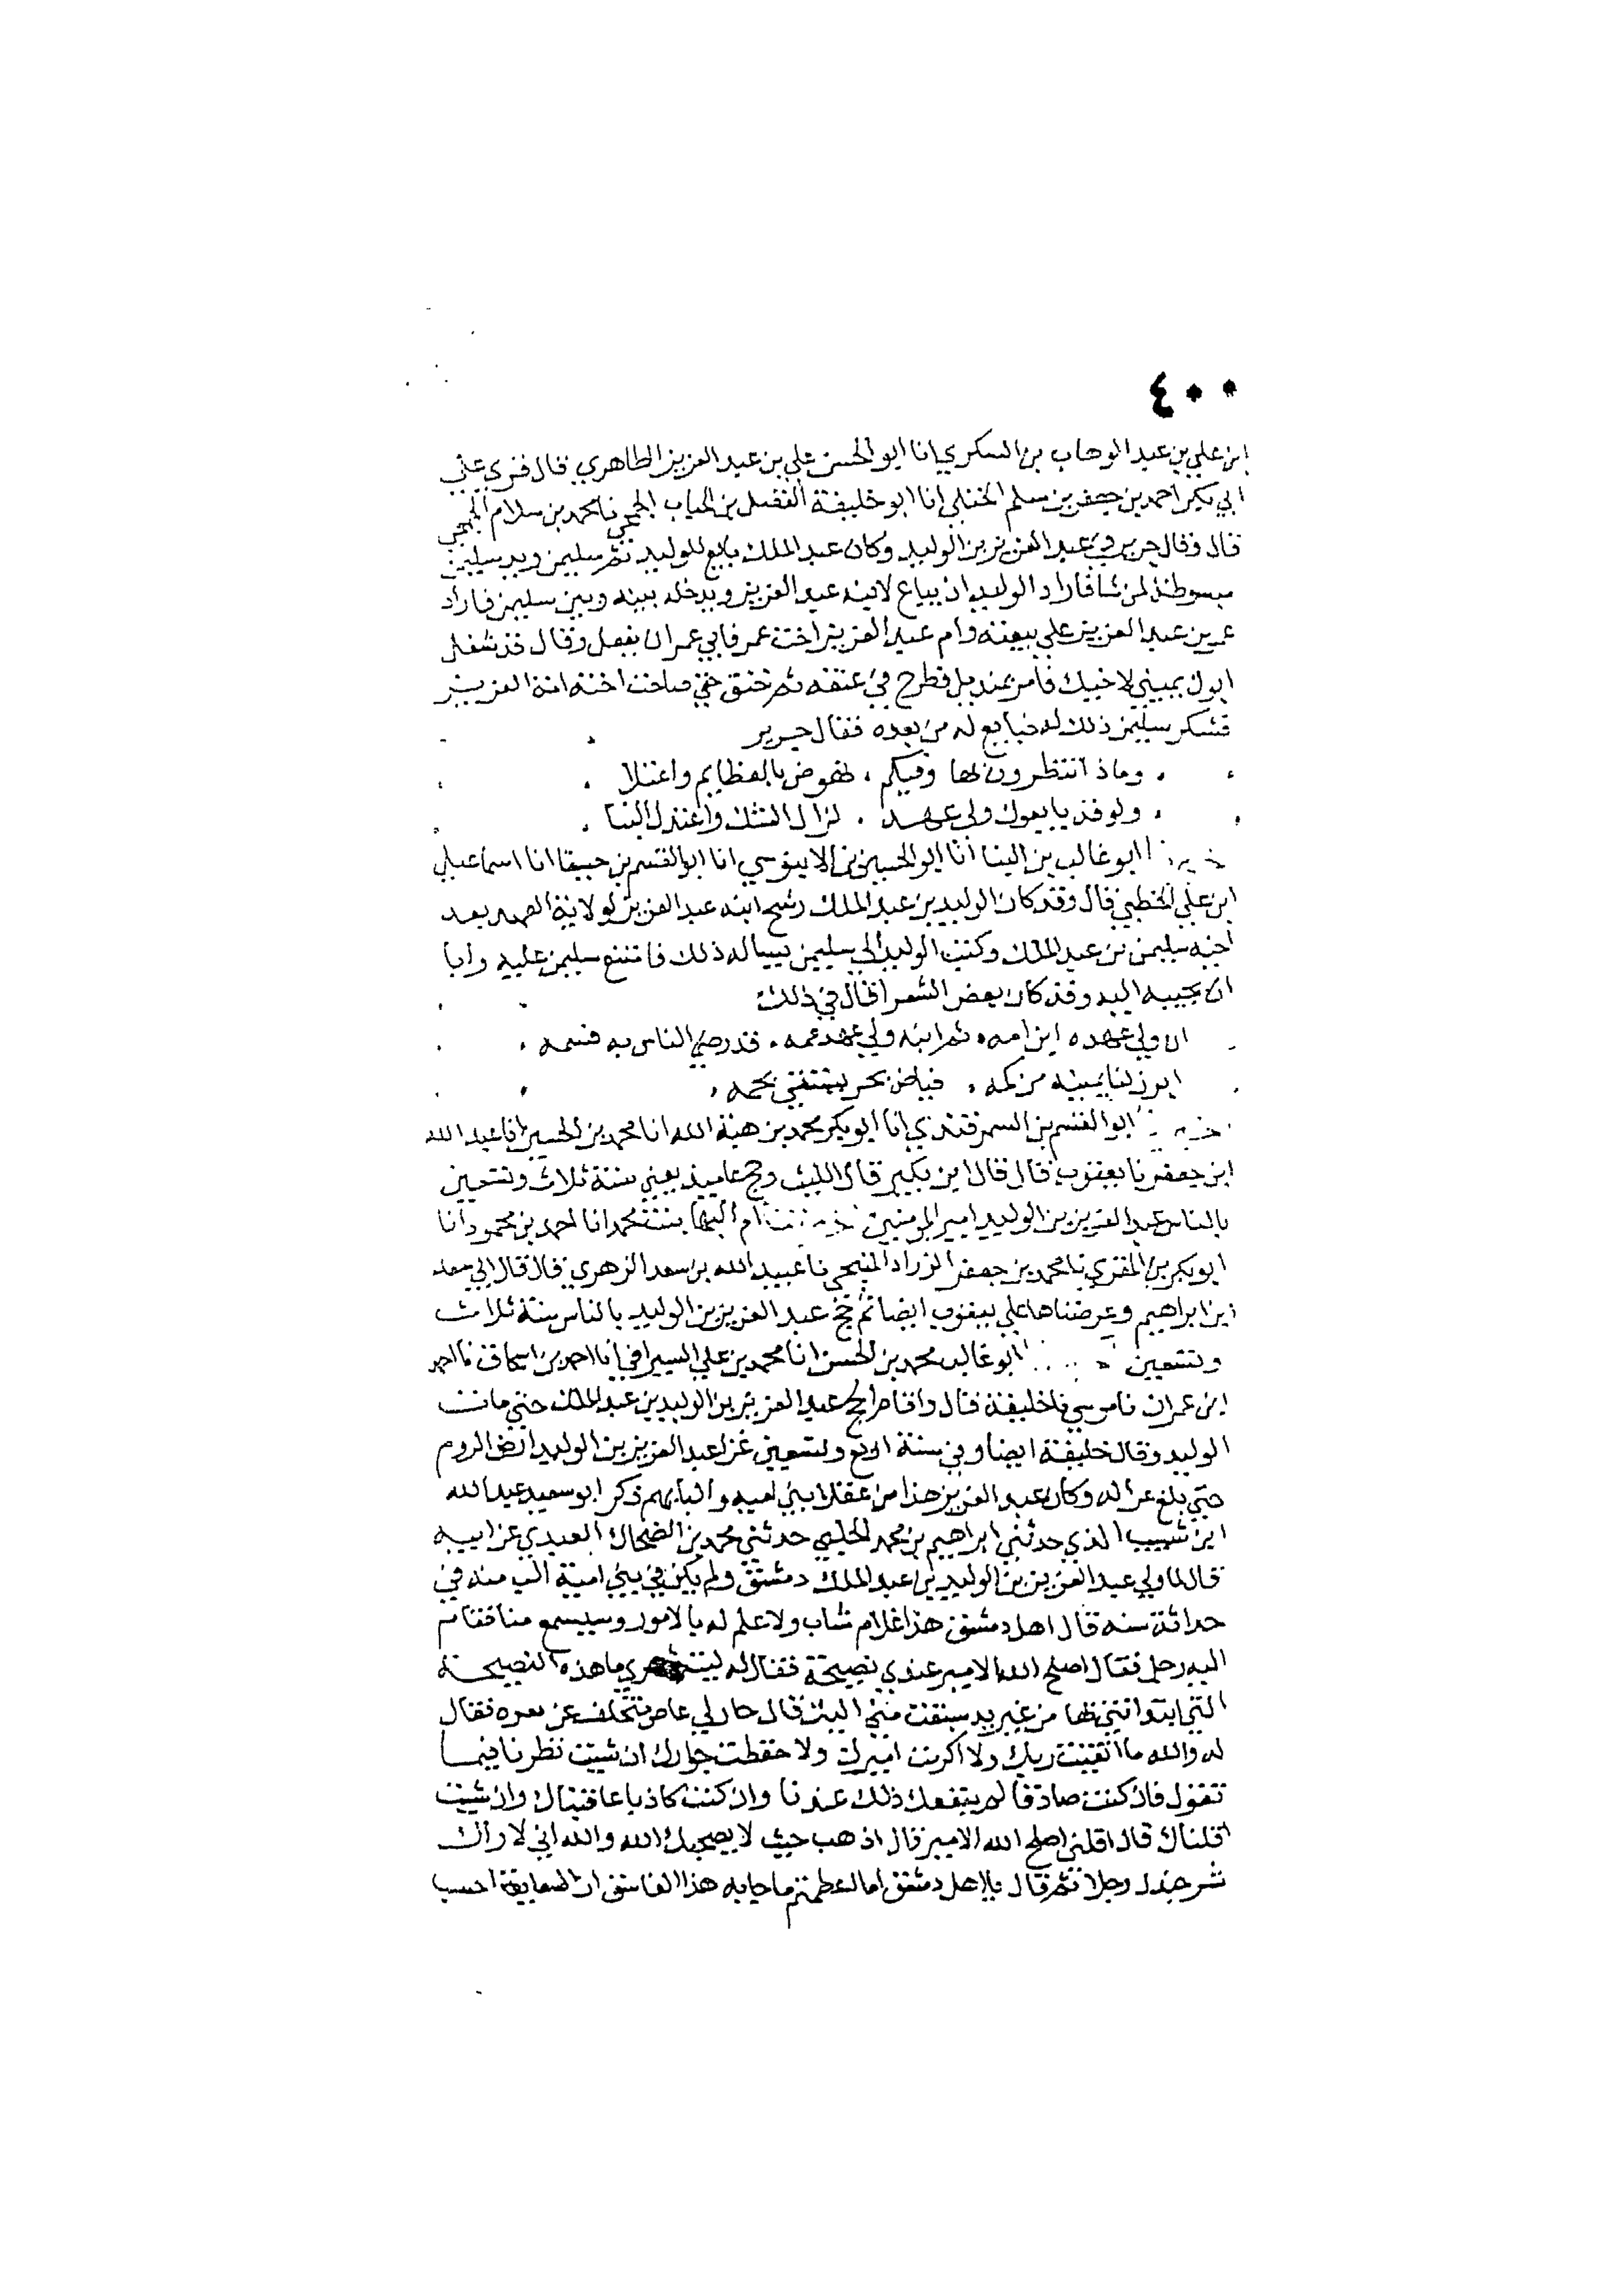 ٤٠٠
ابن علي بن عبد الوهاب بن السكري انا ابو الحسن علي بن عبد العزيز الطاهري قال قري علي
ابي بكر احمد بن جعفر بن سلم الختلي انا ابو خليفة الفضل بن الحباب الجمحي نا محمد بن سلام الجمحي
قال وقال جرير في عبد العزيز بن الوليد وكان عبد الملك بايع للوليد ثم سليمن ويد سليمن
مبسوطة لمن شا فاراد الوليد ان يبايع لابنه عبد العزيز ويدخله بينه وبين سليمن فاراد
عمر بن عبد العزيز علي بيعته وام عبد العزيز اخت عمر فابي عمر ان يفعل وقال
ابوك يميني لاخيك فامر بمنديل فطرح في عنقه ثم خنق حتي صاحت اخته
فشكر سليمن ذلك له فبايع له من بعده فقال جرير
وماذا تنتظرون بها وفيكم . نهوض بالعظايم واعتلا .
ولو قد بايعوك ولي عهد . لزال الشك واعتدل البنا .
ابو غالب بن البنا انا ابو الحسين بن الابنوسي انا ابو القسم بن حبيقا انا اسماعيل
ابن علي الخطبي قال وقد كان الوليد بن عبد الملك رشح ابنه عبد العزيز لولاية العهد بعد
اخيه سليمن بن عبد الملك وكتب الوليد الي سليمن يساله ذلك فامتنع سليمن عليه وابا
ان يجيبه اليه وقد كان بعض الشعرا قال في ذلك
ان ولي عهده ابن امه . ثم ابنه ولي عهد عمه . قد رضي الناس به فسمه .
ابرز لنا يمينه من كمه .
ابو القسم بن السمرقندي انا ابو بكر محمد بن هبة الله انا محمد بن الحسين انا عبد الله
ابن جعفر نا يعقوب قال قال ابن بكير قال الليث وحج عاميذ يعني سنة ثلاث وتسعين
بالناس عبد العزيز بن الوليد امير المومنين ام البها بنت محمد انا احمد بن محمود انا
ابو بكر بن المقري نا محمد بن جعفر الزراد المنبجي نا عبيد الله بن سعد الزهري قال قال ابي سعد
بن ابراهيم وعرضناها علي يعقوب ايضا ثم حج عبد العزيز بن الوليد بالناس سنة ثلاث
وتسعين ابو غالب محمد بن الحسن انا محمد بن علي السيرافي انا احمد بن اسحاق نا احمد
ابن عمران نا موسي نا خليفة قال واقام الحج عبد العزيز بن الوليد بن عبد الملك حتي مات
الوليد وقال خليفة ايضا وفي سنة اربع وتسعين غزا عبد العزيز بن الوليد ارض الروم
حتي بلغ غزاله وكان عبد العزيز هذا من عقلا بني اميه والبابهم ذكر ابو سعيد عبد الله
ابن شبيب الذي حدثني ابراهيم بن محمد الحلبي حدثني محمد بن الضحاك العبدي عن ابيه
قال لما ولي عبد العزيز بن الوليد بن عبد الملك دمشق ولم يكن في بني امية الب منه في
حداثة سنه قال اهل دمشق هذا غلام شاب ولا علم له بالامور وسيسمع منا فقام
اليه رجل فقال اصلح الله الامير عندي نصيحة فقال له ليت شعري ما هذه النصيحة
التي ابتداتني بها من غير يد سبقت مني اليك قال جار لي عاص متخلف عن فقال
له والله ما اتقيت ربك ولا اكرمت اميرك ولا حفظت جوارك ان شيت نظرنا فيما
تقول فان كنت صادقا لم ينفعك ذلك عندنا وان كنت كاذبا عاقبناك وان شيت
اقلناك قال اقلني اصلح الله الامير قال اذهب حيث لا يصحبك الله والله اني لاراك
شر رجلا ثم قال يا اهل دمشق اما ما جا به هذا الفاسق ان السعاية احسب